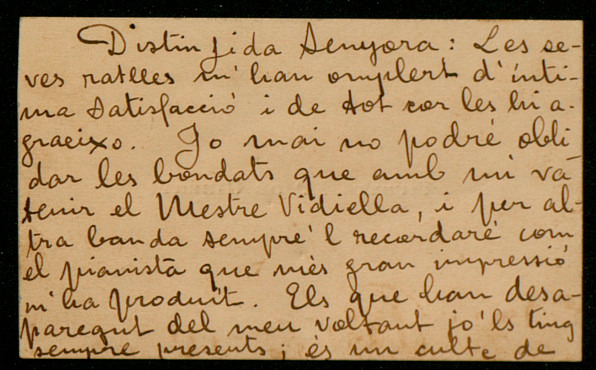 Distingida Senyora: Les se-
ves ratlles m'han omplert d'ínti-
ma satisfacció i de tot cor les hi a-
graeixo. Jo mai no podré obli
dar les bondats que amb mi va
tenir el Mestre Vidiella, i per al-
tra banda sempre'l recordaré com
el pianista que més gran impressió
m'ha produït. Els que han desa-
paregut del meu voltant jo'ls ting
sempre presents; és un culte de